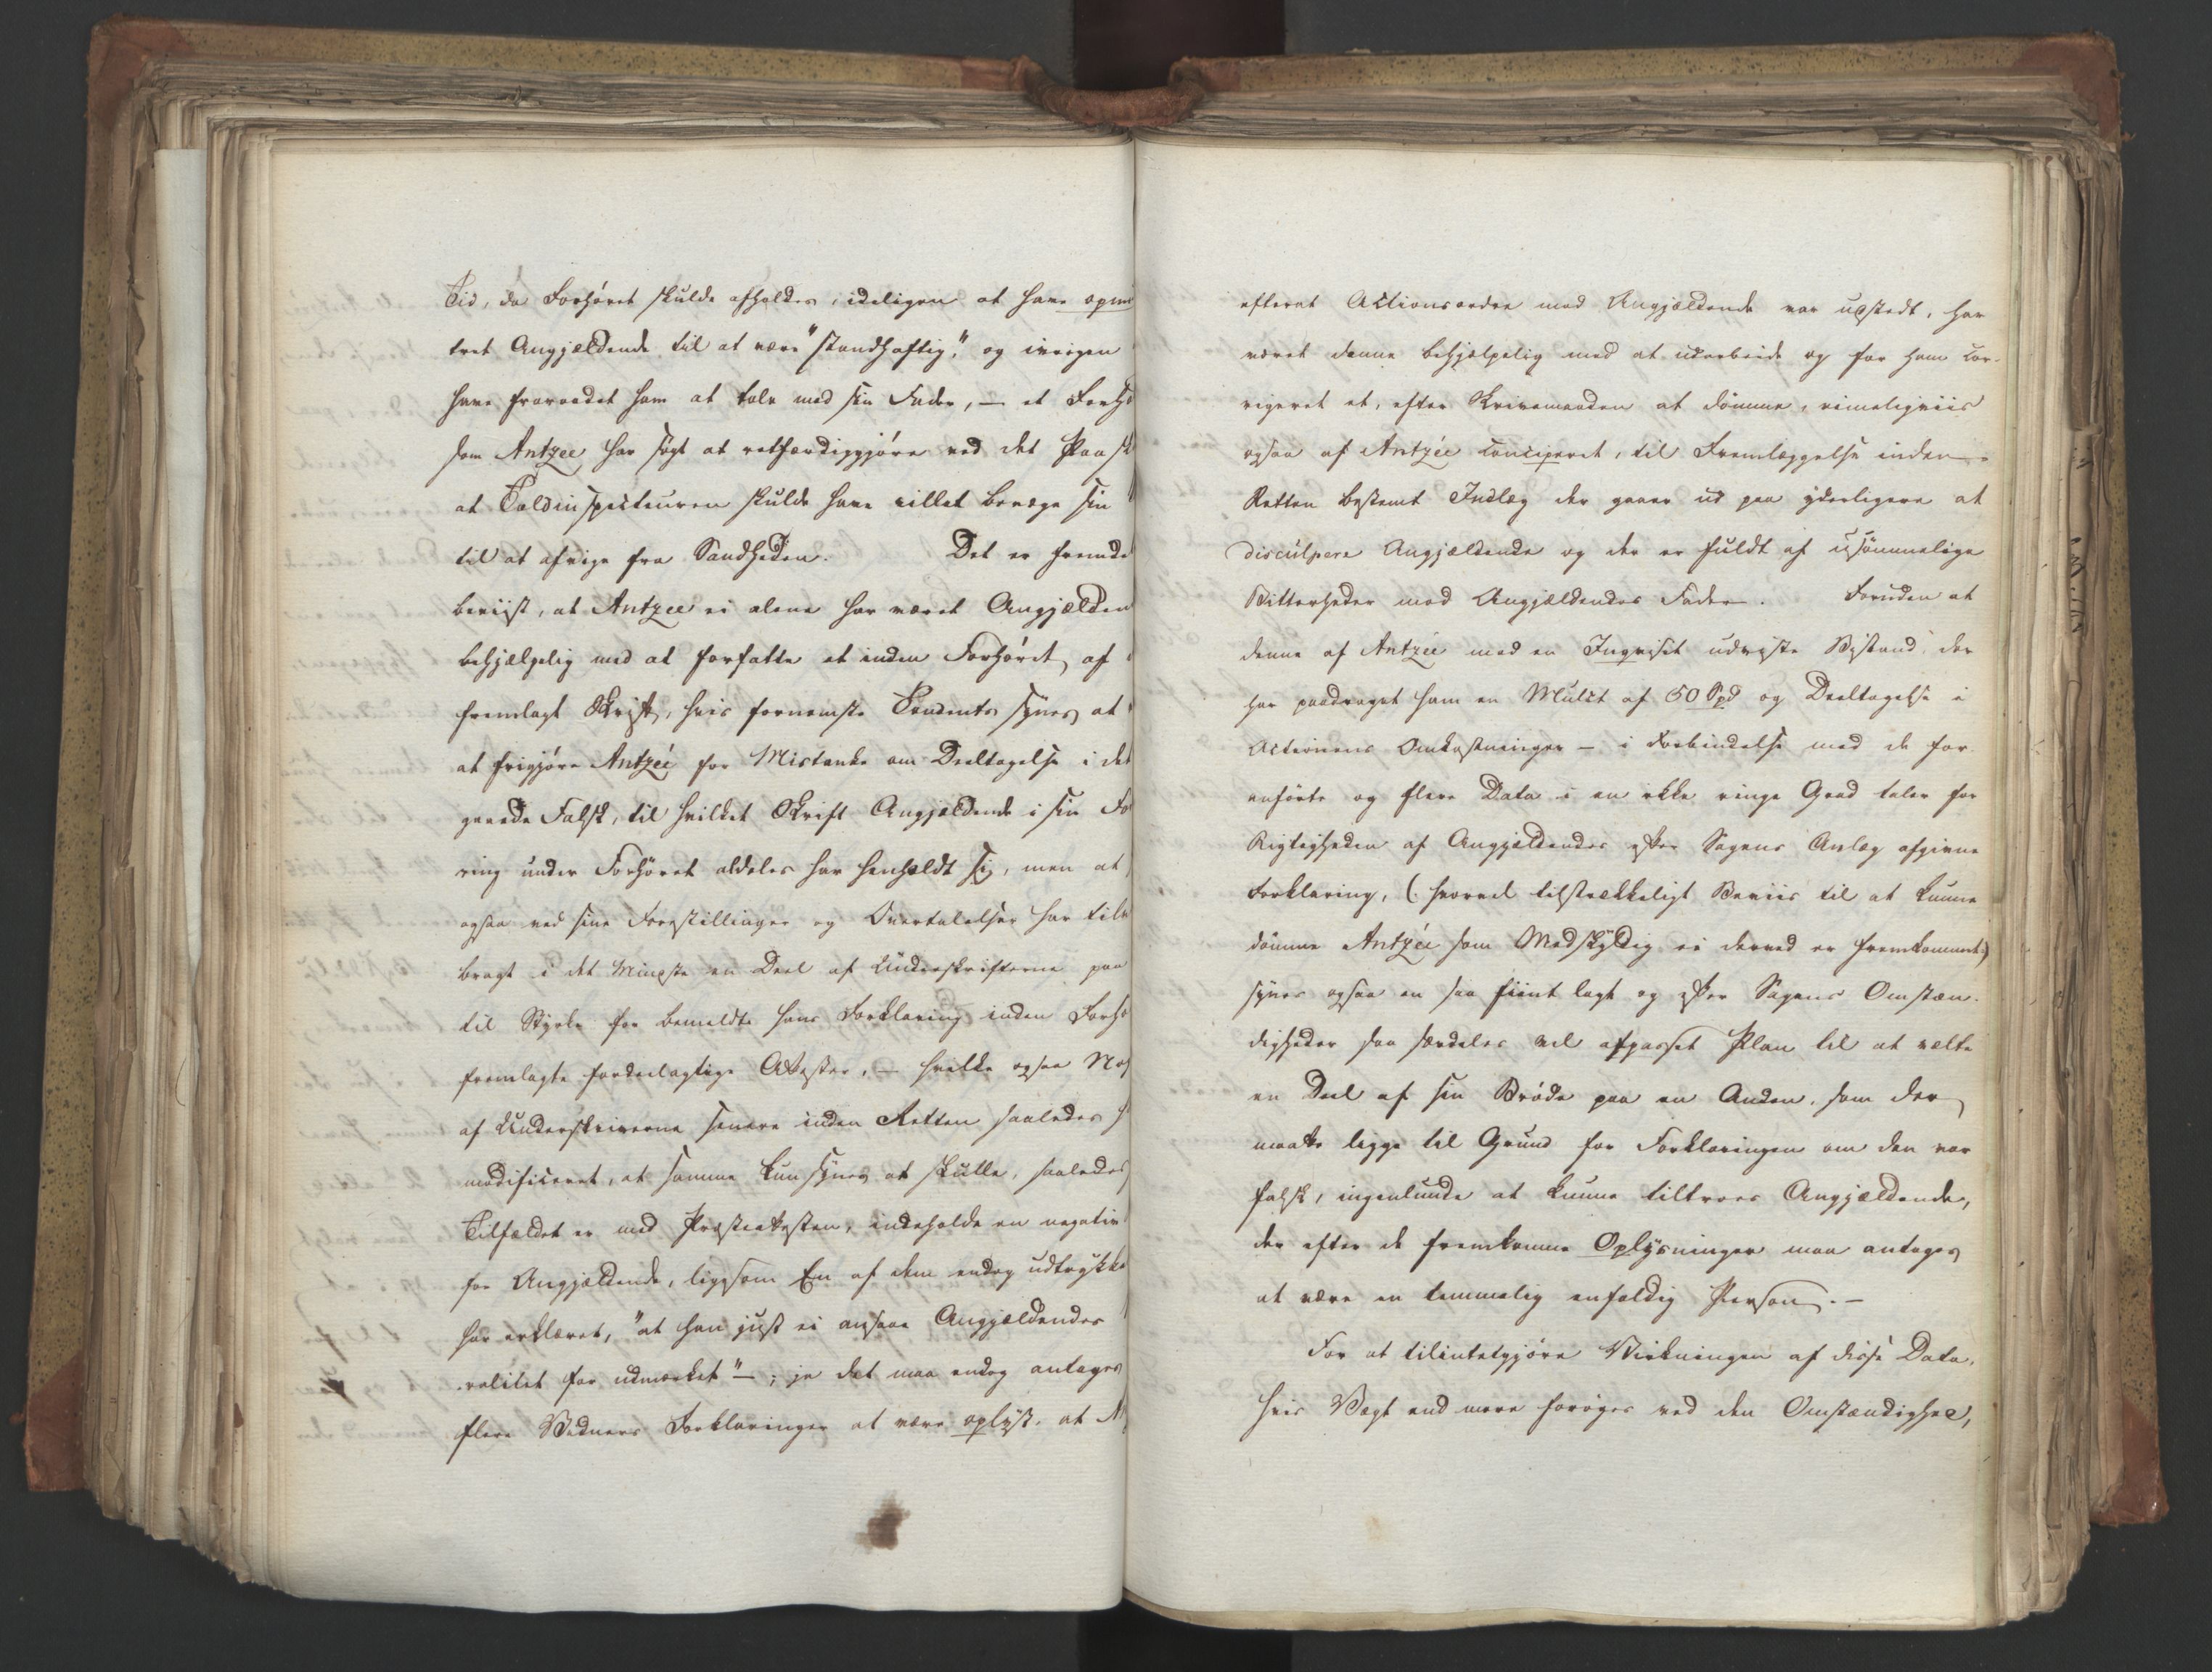 Tid, da Forhöret skulde afholdes, ideligen at have opmun
tret Angjældende til at være "standhaftig", og ivrigen
have fraraadet ham at tale med sin Fader, — et Forho
som Antzée har sögt at retfærdiggjöre ved det Paask
at Toldinspecteuren skulde have villet bevæge sin
til at afvige fra Sandheden. Det er fremde
beviist, at Antzee ei alene har været Angjælden
behjælpelig med at forfatte et inden Forhöret af
fremlagt Skrift, hvis fornemste Tendents synes at
at frigjöre Antzée for Mistanke om Deeltagelse i det
gaaede Falsk, til hvilket Skrift Angjældende i sin Fo
ring under Forhöret aldeles har henholdt sig, men at
ogsaa ved sine Forestillinger og Overtalelser har tilv
bragt i det Mindste en Deel af Underskrifterne paa
til Styrke for bemeldte hans Forklaring inden Forhö
fremlagte fordeelagtige Attester, — hvilke ogsaa No
af Underskriverne senere inden Retten saaledes h
modificeret, at samme kun synes at skulle, saaledes
Tilfældet er med Præsteattesten, indeholde en negativ
for Angjældende, ligesom Een af dem endog udtrykke
har erklæret, "at han just ei ansaae Angjældendes
ralitet for udmærket" —; ja det maa endog antages
flere Vidners Forklaringer at være oplyst, at A
efterat Actionsordre mod Angjældende var udstedt, har
været denne behjælpelig med at udarbeide og for ham cor-
rigeret et, efter Skrivemaaden at dömme, rimeligviis
ogsaa af Antzée concipieret, til Fremlæggelse inden
Retten bestemt Indlæg der gaaer ud paa yderligere at
disculpere Angjældende og der er fuldt af usömmelige
Bitterheder mod Angjældendes Fader. Foruden at
denne af Antzée mod en Inqvisit udviste Bistand der
har paadraget ham en Mulct af 50 Spd og Deeltagelse i
Actionens Omkostninger — i Forbindelse med de for
anförte og flere Data i en ikke ringe Grad taler for
Rigtigheden af Angjældendes efter Sagens Anlæg afgivne
Forklaring, (hvorvel tilstrækkeligt Beviis til at kunne
dömme Antzée som Medskyldig ei derved er fremkommet)
synes ogsaa en saa fiint lagt og efter Sagens Omstæn-
digheder saa særdeles vel afpasset Plan til at vælte
en Deel af sin Bröde paa en Anden, som der
maatte ligge til Grund for Forklaringen om den var
falsk, ingenlunde at kunne tiltroes Angjældende,
der efter de fremkomne Oplysninger maa antages
at være en temmelig enfoldig Person. —
For at tilintetgjöre Virkningen af disse Data,
hvis Vægt end mere foröges ved den Omstændighed,